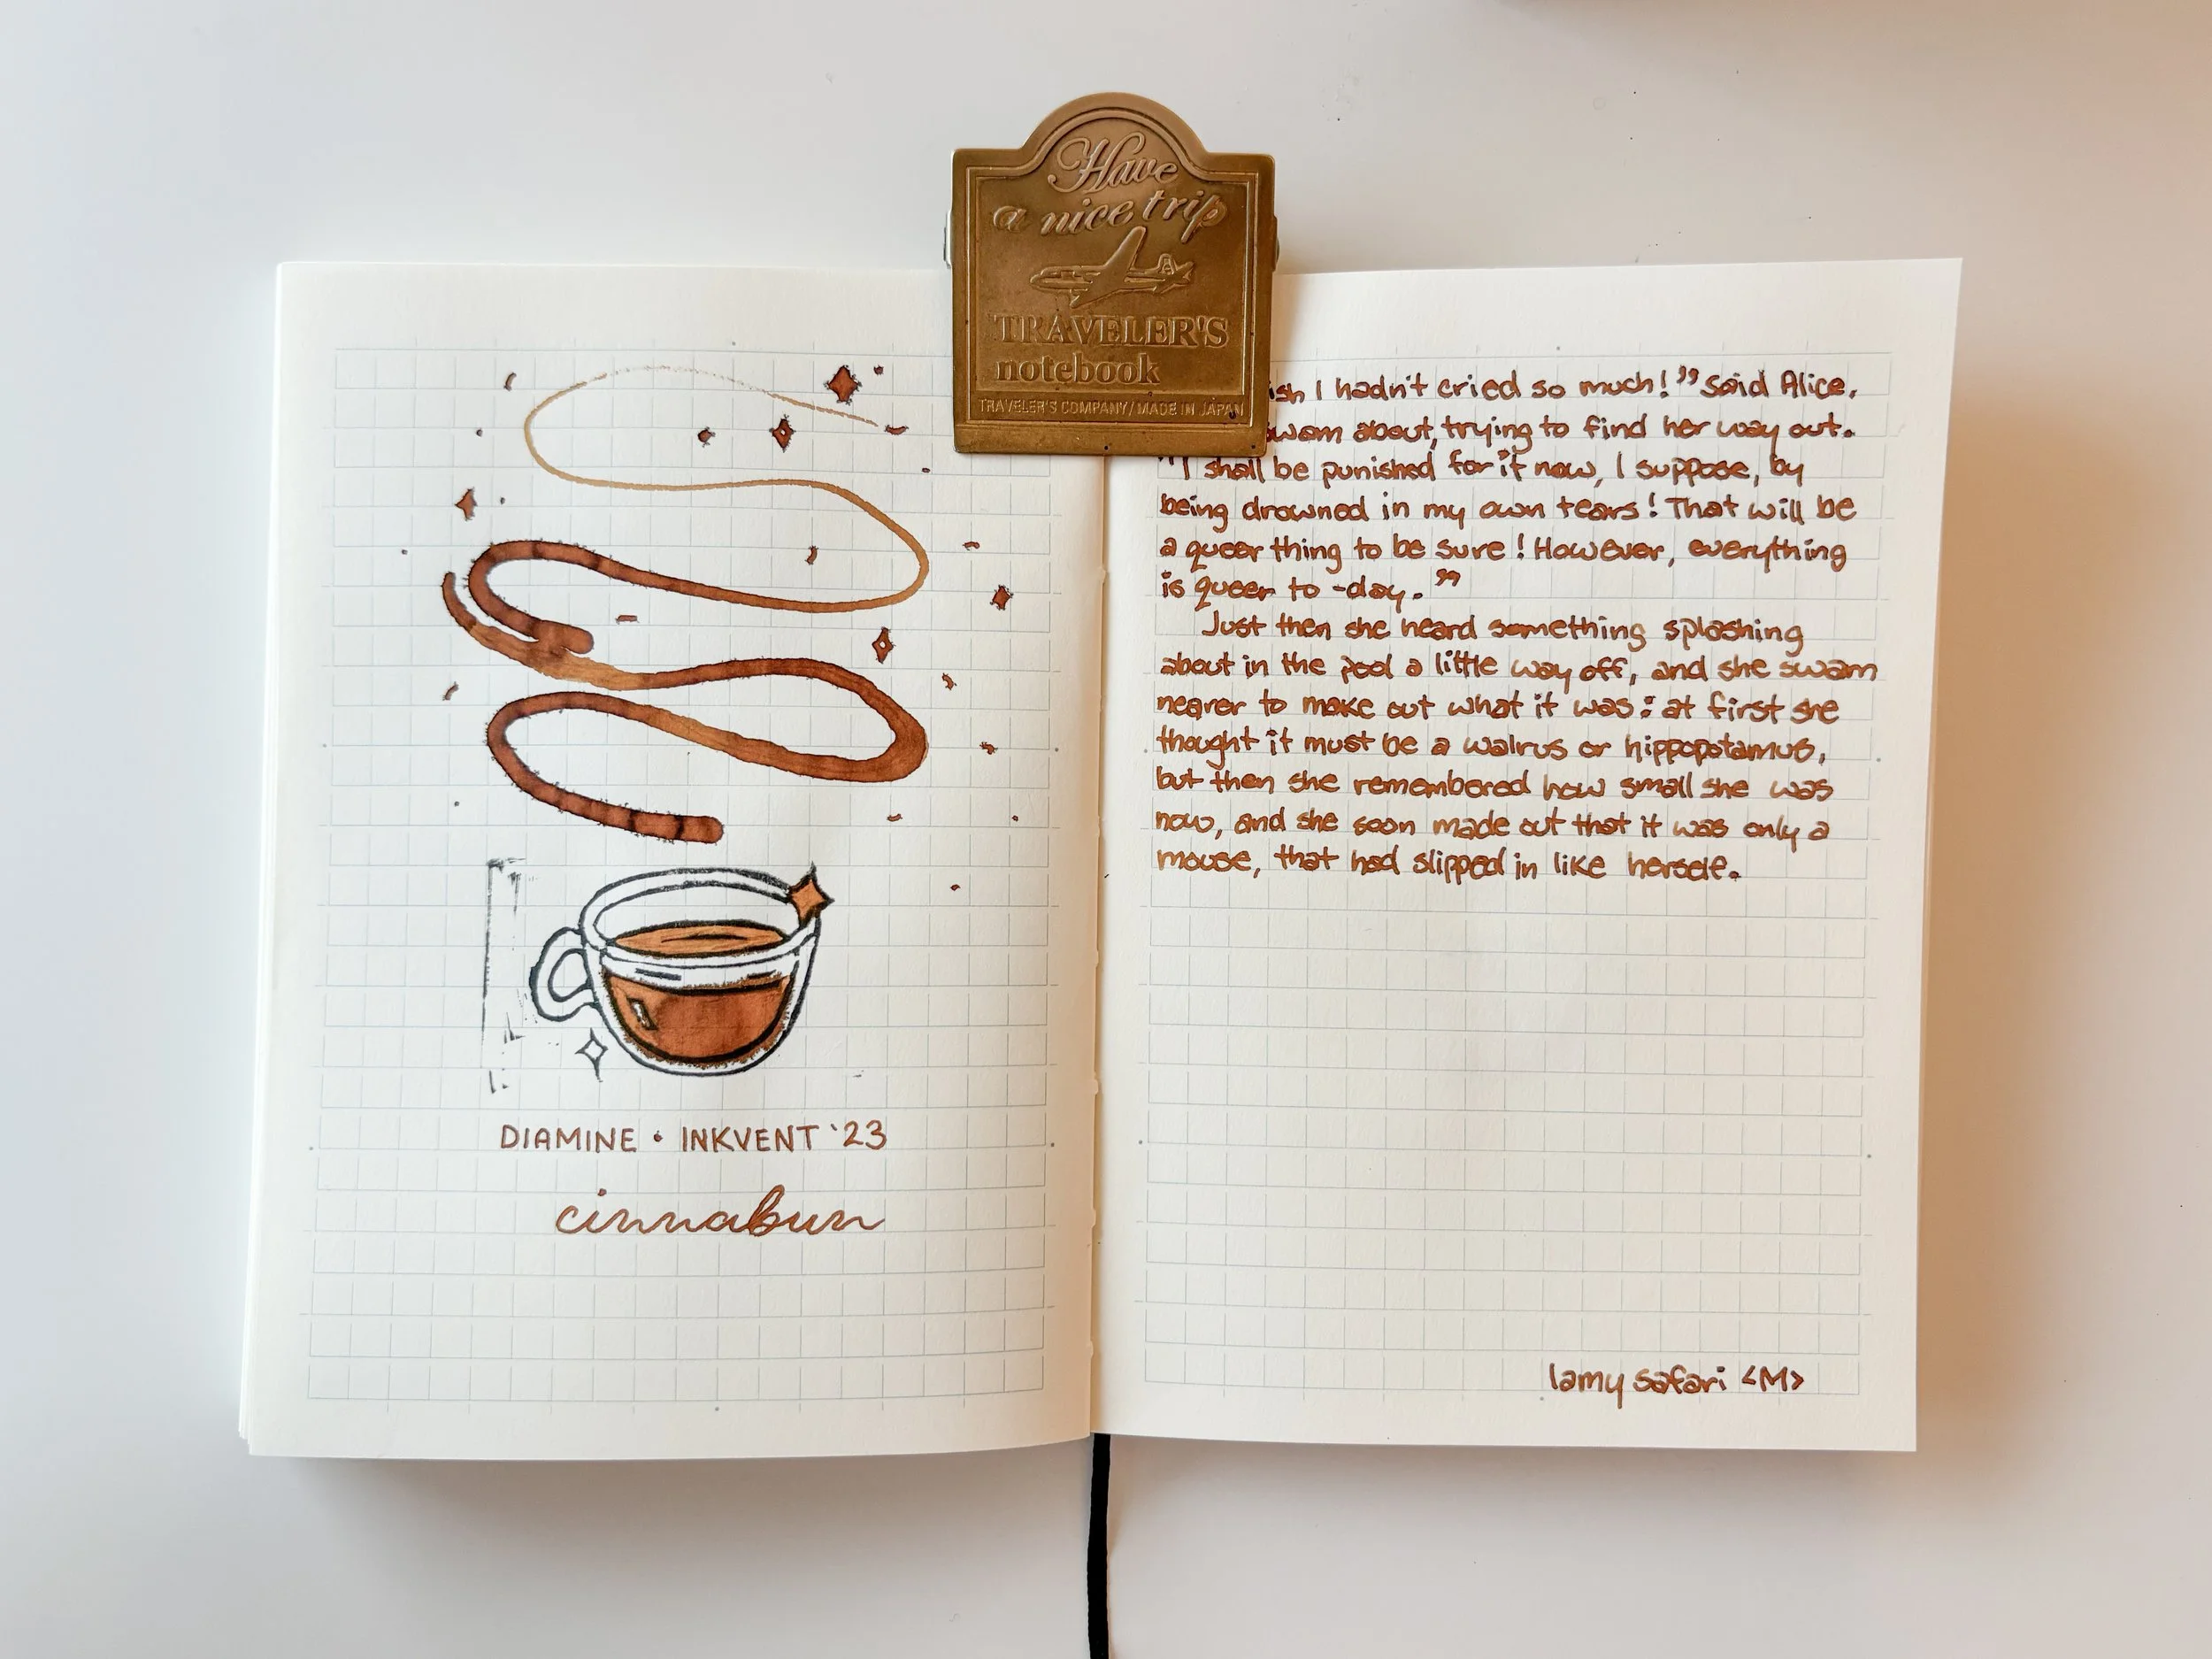 Have
a nice trip
TRAVELER'S
notebook
TRAVELER'S COMPANY/MADE IN JAPAN
DIAMINE • INKVENT '23
cinnabun
ish I hadn't cried so much!" said Alice,
swam about, trying to find her way out.
"I shall be punished for it now, I suppose, by
being drowned in my own tears! That will be
a queer thing to be sure! However, everything
is queer to-day."
Just then she heard something splashing
about in the pool a little way off, and she swam
nearer to make out what it was: at first she
thought it must be a walrus or hippopotamus,
but then she remembered how small she was
now, and she soon made out that it was only a
mouse, that had slipped in like herself.
lamy safari <M>